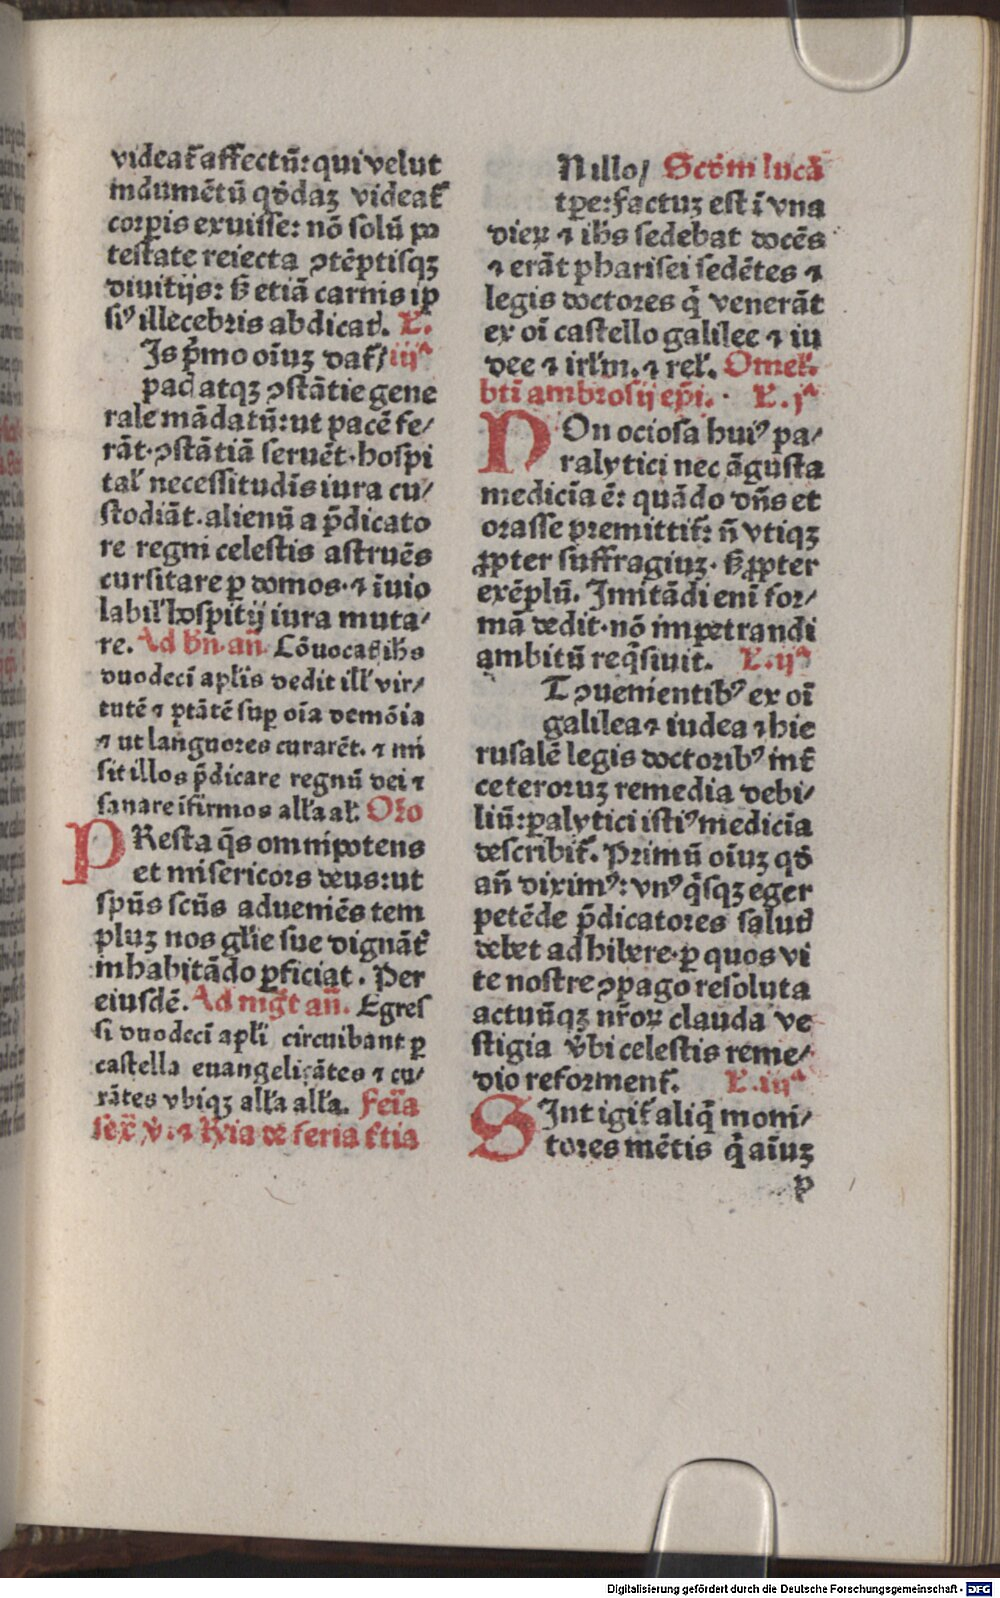 videat᷑ affectū: qui velut
indumētū qd̄daꝫ videat᷑
corꝑis exuisse: nō solū po
testate reiecta ꝯtēptisqꝫ
diuitijs: sꝫ etiā carnis ip̄
siꝰ illecebris abdicat᷑. L̄.
Is p̄mo oīuꝫ dat᷑/ iijᵃ
pad atqꝫ ꝯstātie gene
rale mādatū: ut pacē fe/
rāt· ꝯstātiā seruēt· hospi
tal̓ necessitudīs iura cu/
stodiāt· alienū a p̄dicato
re regni celestis astruēs
cursitare ꝑ domos· ⁊ īuio
labil̓ hospitij iura muta/
re. Ad bn̄· an̄. Cōuocat᷑ ih̄s
duodecī apl̄is dedit ill̓ vir/
tutē ⁊ ptātē sup oīa demōia
⁊ ut languores curarēt. ⁊ mi
sit illos p̄dicare regnū dei ⁊
sanare īfirmos all̓a al̓. Oro
PResta q̄s omnipotens
et misericors deus: ut
spūs scūs adueniēs tem
pluꝫ nos gl̓ie sue dignāt᷑
inhabitādo ꝑficiat. Per
eiusdē. Ad mgt̄ an̄. Egres
si duodecī apl̓i circuibant ꝑ
castella euangelizātes ⁊ cu/
rātes vbiqꝫ all̓a all̓a. Feīa
sex̄ v̄. ⁊ R̄ia de feria t᷑tia
Nillo/ Scd̄m lucā
tꝑe: factuꝫ est ī vna
dieꝝ ⁊ ih̄s sedebat docēs
⁊ erāt pharisei sedētes ⁊
legis doctores q̄ venerāt
ex oī castello galilee ⁊ iu
dee ⁊ irl̓m. ⁊ rel̓. Omel̓.
btī ambrosij ep̄i. · L̄. jᵃ
NOn ociosa huiꝰ pa/
ralytici nec āgusta
medicīa ē: quādo dn̄s et
orasse premittit᷑: n̄ vtiqꝫ
ꝓpter suffragiuꝫ· sꝫ ꝓpter
exēplū. Imitādi enī for/
mā dedit· nō impetrandi
ambitū req̄siuit. L̄. ijᵃ
T ꝯuenientibꝰ ex oī
galilea ⁊ iudea ⁊ hie
rusalē legis doctoribꝰ int᷑
ceteroruꝫ remedia debi/
liū: ꝑalytici istiꝰ medicīa
describit᷑. Primū oīuꝫ qd̄
an̄ diximꝰ: vnꝰ q̄sqꝫ eger
petēde p̄dicatores salut᷑
debet adhibere· ꝑ quos vi
te nostre ꝯpago resoluta
actuūqꝫ nr̄oꝝ clauda ve
stigia v̄bi celestis reme/
dio reforment᷑. L̄. iijᵃ
SInt igit᷑ aliq̄ moni/
tores mētis q̄ aīuꝫ
p
Digitalisierung gefördert durch die Deutsche Forschungsgemeinschaft - DFG